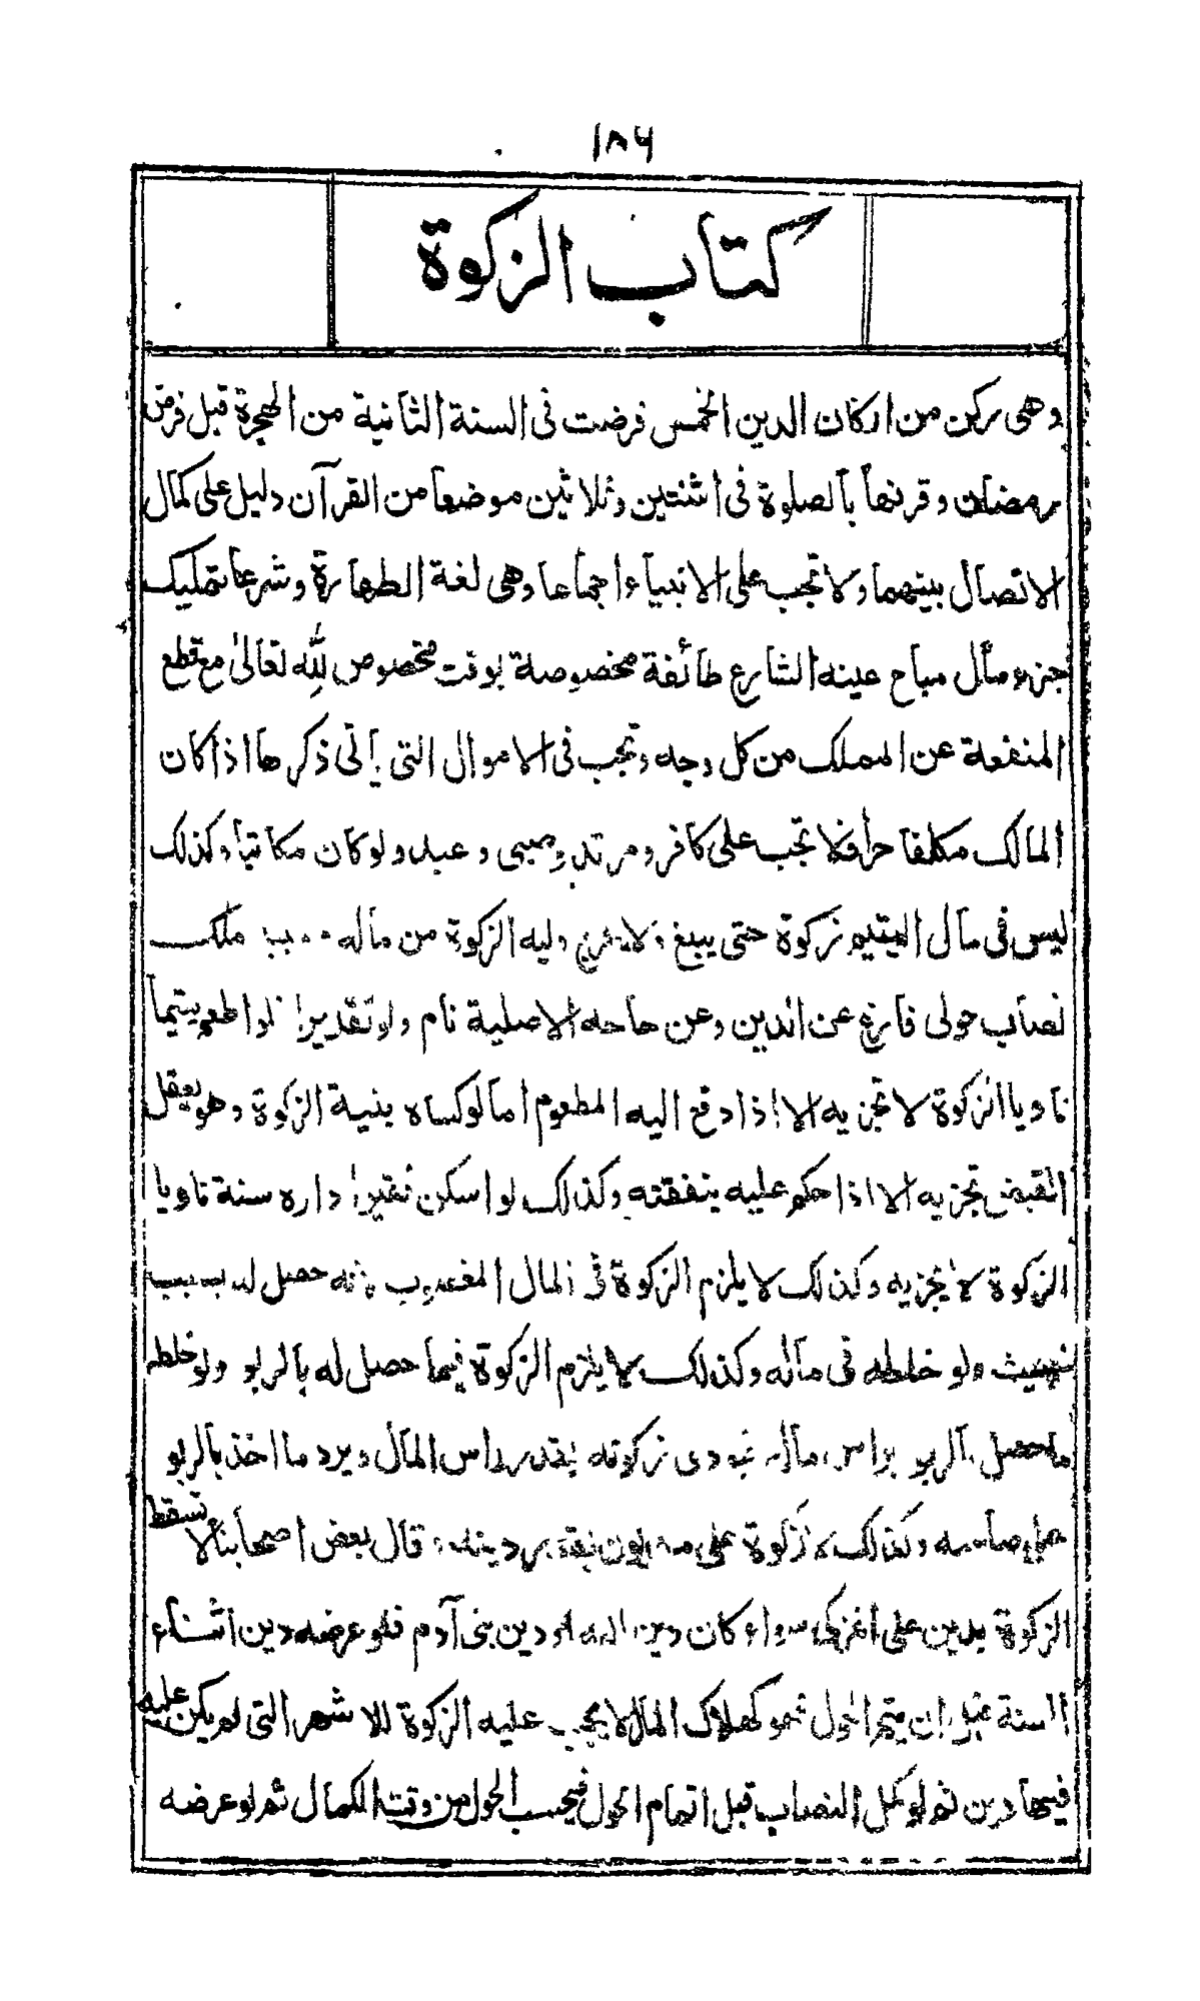 ۱۸۶
كتاب الزكوة
وهى ركن من اركان الدين الخمس فرضت فى السنة الثانية من الهجرة قبل فرض
رمضان وقرنها بالصلوة فى اثنتين وثلاثين موضعا من القرآن دليل على كمال
الاتصال بينهما ولا تجب على الانبياء اجماعا وهى لغة الطهارة وشرعا تمليك
جزء مال مباح عينه الشارع طائفة مخصوصة بوقت مخصوص لله تعالى مع قطع
المنفعة عن المملك من كل وجه وتجب فى الاموال التى يأتى ذكرها اذا كان
المالك مكلفا حرا فلا تجب على كافر ومرتد وصبى وعبد ولو كان مكاتبا وكذلك
ليس فى مال اليتيم زكوة حتى يبلغ ولا وليه الزكوة من ماله ملك
نصاب حولى فارغ عن الدين وعن حاجه الاصلية نام ولو تقديرا لو اطعم يتيما
ناويا الزكوة لا تجزيه الا اذا دفع اليه المطعوم اما لو كساه بنية الزكوة وهو يعقل
القبض تجزيه الا اذا حكم عليه بنفقته وكذلك لو اسكن فقيرا داره سنة ناويا
الزكوة لا يجزيه وكذلك لا يلزم الزكوة فى المال المغصوب حصل له بسبب
خبيث ولو خلطه فى ماله وكذلك لا يلزم الزكوة فيما حصل له بالربو ولو خلطه
ما حصل بالربو براس ماله زكوته بقدر راس المال ويرد ما اخذ بالربو
على صاحبه وكذلك لا زكوة على مديون بقدر دينه وقال بعض اصحابنا لا تسقط
الزكوة بدين على المزكى سواء كان دين الله او دين بنى آدم فلو عرضه دين اثناء
السنة قبل ان يتم الحول فهو كهلاك المال لا يجب عليه الزكوة للاشهر التى لم يكن عليه
فيها دين ثم لو كمل النصاب قبل اتمام الحول فيحسب الحول من وقت الكمال ثم لو عرضه